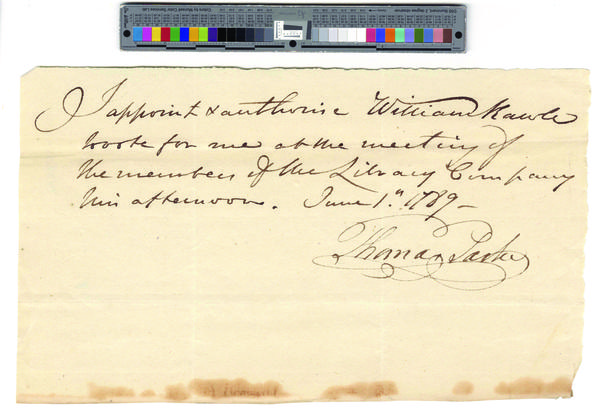 I appoint & authorise William Rawle
to vote for me at the meeting of
the members of the Library Company
this afternoon. June 1.st 1789 —
Thomas Parke